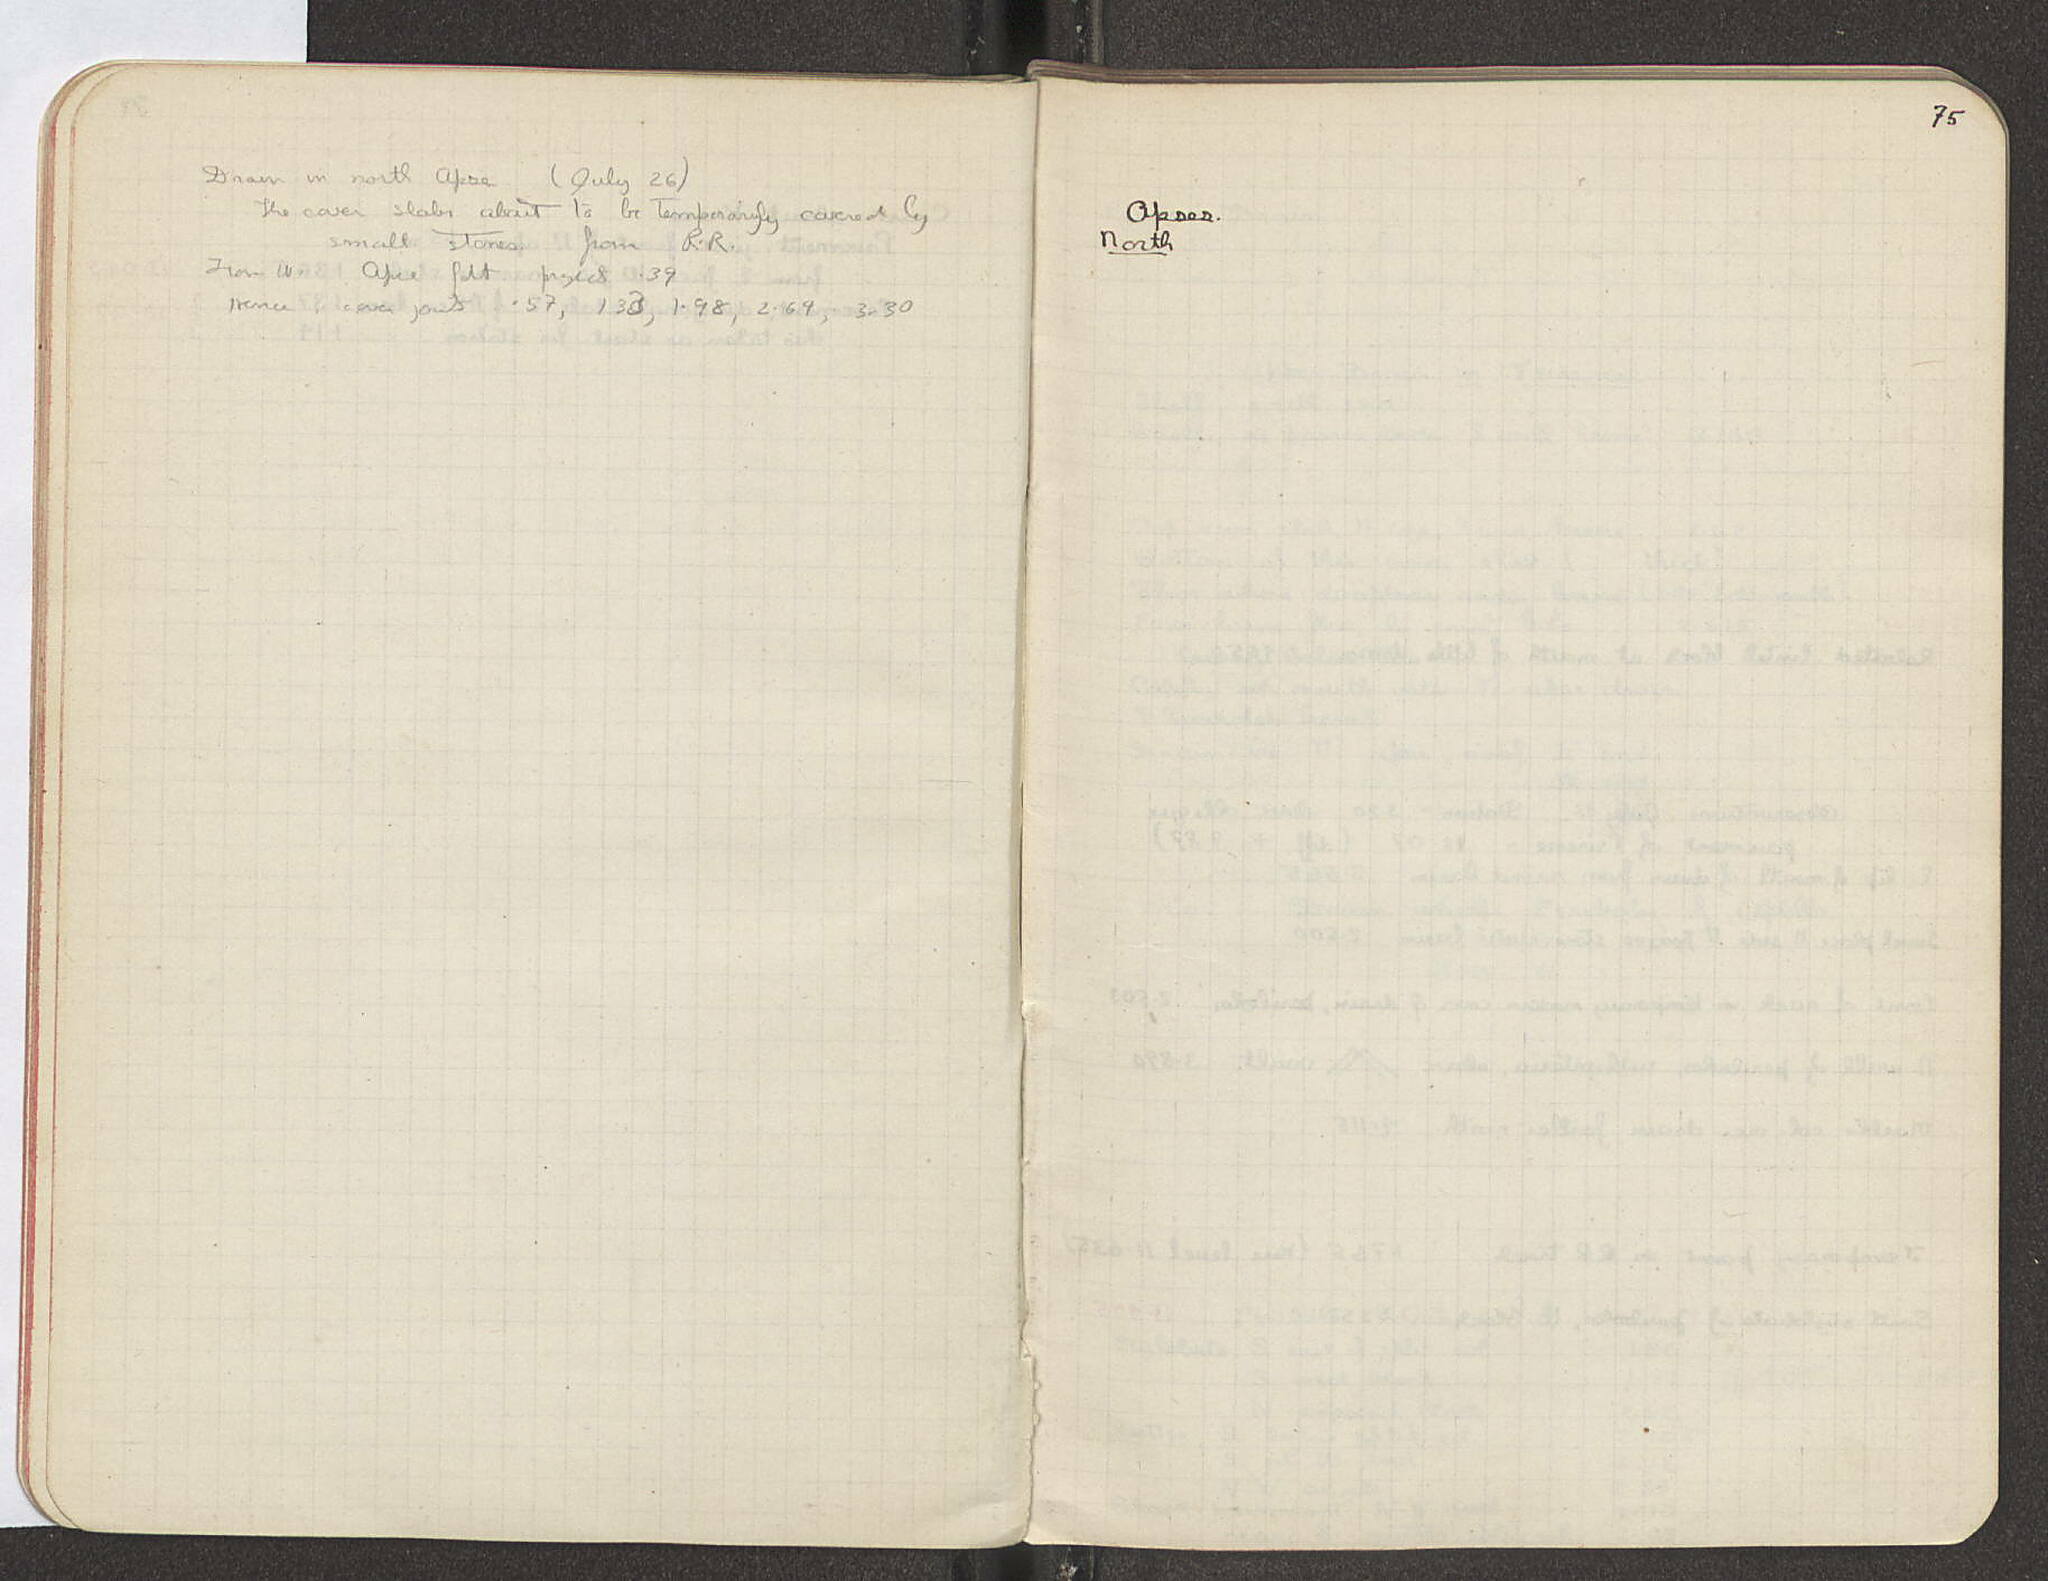 Drain in north Apse (July 26)
The cover slabs about to be temporarily covered by
small stones from R.R.
From Apse project .39
Hence cover joints .57, 1.33, 1.98, 2.64, 3.30
75
Apses.
North